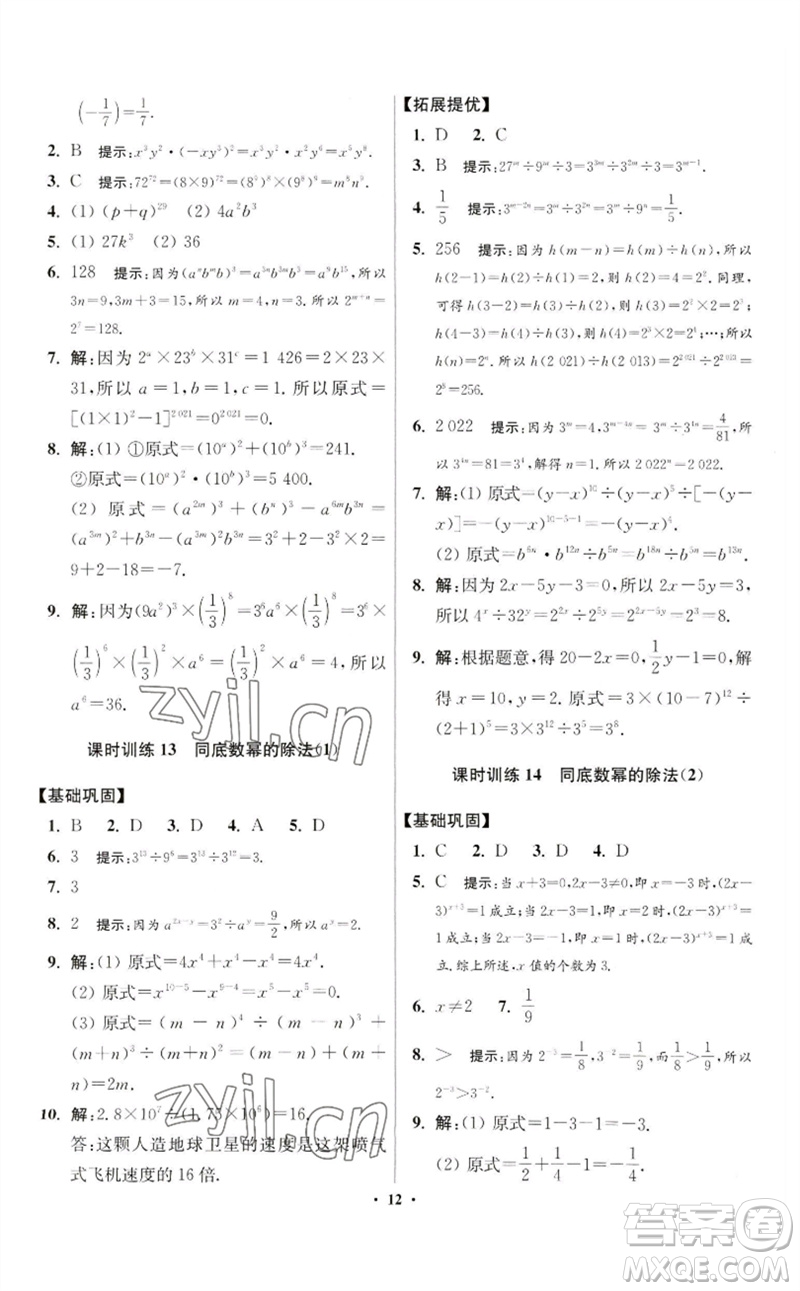 (-1/7)=1/7.
2. B 提示:x³y²·(-xy⁵)²=x³y²·x²y¹⁰=x⁵y¹².
3. C 提示:72⁷²=(8×9)⁷²=
4. (1) (p+q)²⁹ (2) 4a²b³
5. (1) 27k³ (2) 36
6. 128 提示:因为(aⁿbᵐb)³=a³ⁿb³ᵐb³=a⁹b¹⁵,所以
3n=9,3m+3=15,所以m=4,n=3.所以2ᵐ⁺ⁿ=
2⁷=128.
7. 解:因为2ᵃ×23ᵇ×31ᶜ=1 426=2×23×
31,所以a=1,b=1,c=1,所以原式=
[(1×1)²-1]²⁰²¹=0²⁰²¹=0.
8. 解:(1) ①原式=(10ᵃ)²+(10ᵇ)³=241.
②原式=(10ᵃ)²·(10ᵇ)³=5 400.
(2) 原式=(a²ᵐ)³+(bⁿ)³-a⁶ᵐb³ⁿ=
=3²+2-3²×2=
9+2-18=-7.
9. 解:因为(9a²)³×(1/3)⁸=3⁶a⁶×(1/3)⁸=
(1/3)⁶×(1/3)²×a⁶=(1/3)²×a⁶=4,所以
a⁶=36.
课时训练13 同底数幂的除法(1)
【基础巩固】
1. B 2. D 3. D 4. A 5. D
6. 3 提示:3¹³÷9⁶=3¹³÷3¹²=3.
7. 3
8. 2 提示:因为a²ˣ⁻ʸ=3²÷aʸ=9/2,所以aʸ=2.
9. 解:(1) 原式=4x⁴+x⁴-x⁴=4x⁴.
(2) 原式=x¹⁰⁻⁵-x⁹⁻⁴=x⁵-x⁵=0.
(3) 原式=(m-n)⁴÷(m-n)³+
(m+n)³÷(m+n)²=(m-n)+
(m+n)=2m.
10. 解:2.8×10⁷÷(1.75×10⁶)=16.
答:这颗人造地球卫星的速度是这架喷气
式飞机速度的16倍.
【拓展提优】
1. D 2. C
3. B 提示:27ᵐ÷9ᵐ÷3=3³ᵐ÷3²ᵐ÷3=3ᵐ⁻¹.
4. 1/5 提示:3ᵐ⁻²ⁿ=3ᵐ÷3²ⁿ=3ᵐ÷9ⁿ=1/5.
5. 256 提示:因为h(m-n)=h(m)÷h(n),所以
h(2-1)=h(2)÷h(1),所以h(2)=2².同理,
可得h(3-2)=h(3)÷h(2),所以h(3)=2²×2=2³;
h(4-3)=h(4)÷h(3),所以h(4)=2³×2=2⁴;…;所以
h(n)=2ⁿ,所以h(2 021)÷h(2 013)=2²⁰²¹÷2²⁰¹³=
2⁸=256.
6. 2 022 提示:因为3ᵐ=4,3ᵐ⁻⁴ⁿ=3ᵐ÷3⁴ⁿ=4/81,所
以3⁴ⁿ=81=3⁴,解得n=1,所以2 022ⁿ=2 022.
7. 解:(1) 原式=(y-x)¹⁰÷(y-x)⁵÷[-(y-
x)]=-(y-x)¹⁰⁻⁵⁻¹=-(y-x)⁴.
(2) 原式=b⁶ⁿ·b¹²ⁿ÷b⁵ⁿ=b¹⁸ⁿ÷b⁵ⁿ=b¹³ⁿ.
8. 解:因为2x-5y-3=0,所以2x-5y=3,
所以4ˣ÷32ʸ=2²ˣ÷2⁵ʸ=2²ˣ⁻⁵ʸ=2³=8.
9. 解:根据题意,得20-2x=0,1/2y-1=0,解
得x=10,y=2,所以原式=3×(10-7)¹²÷
(2+1)⁵=3×3¹²÷3⁵=3⁸.
课时训练14 同底数幂的除法(2)
【基础巩固】
1. C 2. D 3. D 4. D
5. C 提示:当x+3=0,2x-3≠0,即x=-3时,(2x-
3)ˣ⁺³=1成立;当2x-3=1,即x=2时,(2x-3)ˣ⁺³=
1成立;当2x-3=-1,即x=1时,(2x-3)ˣ⁺³=1
成立.综上所述,x值的个数为3.
6. x≠2 7. 1/9
8. > 提示:因为2⁻³=1/8,3⁻²=1/9,而1/8>1/9,所以
2⁻³>3⁻².
9. 解:(1) 原式=1-3-1=-3.
(2) 原式=1/2+1/4-1=-1/4.
· 12 ·
zyjl.cn
zyjl.cn
答案圈
MXQE.COM